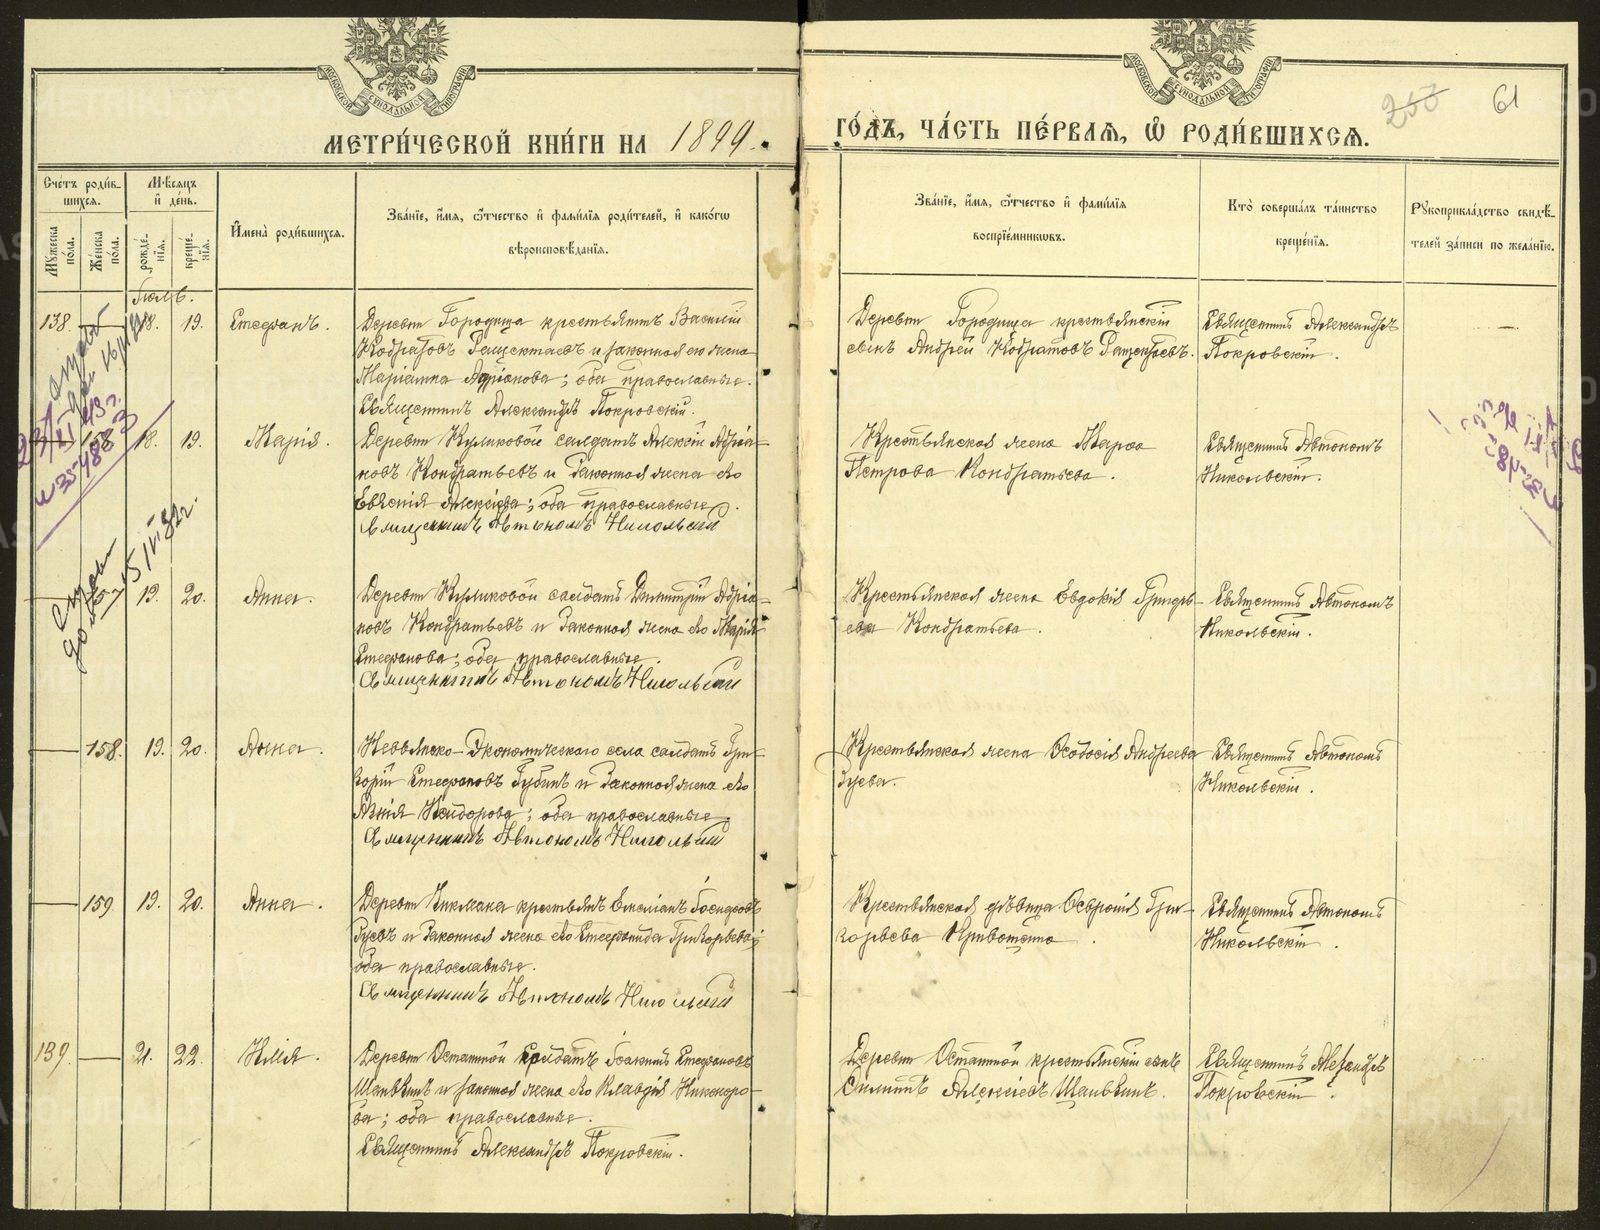 МЕТРИ́ЧЕСКОЙ КНИ́ГИ НА 1899.
ГО́ДЪ, ЧА́СТЬ ПЕ́РВАЯ, Ѿ РОДИ́ВШИХСЯ.
61
Сче́тъ роди́в-
шихся.
Мѣ́сяцъ
и҆ де́нь.
И҆мена̀ роди́вшихся.
Зва́нїе, и҆́мя, ѻ҆́тчество и҆ фами́лїя роди́телей, и҆ како́гѡ
вѣроисповѣ́данїя.
Зва́нїе, и҆́мя, ѻ҆́тчество и҆ фами́лїя
воспрїе́мниковъ.
Кто̀ соверша́лъ та́инство
креще́нїя.
Рꙋкоприкла́дство свидѣ́-
телей за́писи по жела́нїю.
Мꙋ́жеска
по́ла.
Же́нска
по́ла.
рожде́-
нїя.
креще́-
нїя.
Іюль.
138.
18.
19.
Стефанъ.
Деревни Городища крестьянинъ Василій
и законная его жена
Маріамна Адріанова; оба православные.
Священникъ Александръ Покровскій.
Деревни Городища крестьянскій
сынъ Андрей
Священникъ Александръ
Покровскій.
156
18.
19.
Марія.
Деревни Куликовой солдатъ Алексій Адріа-
новъ Кондратьевъ и законная жена его
Евгенія Алексіева; оба православные.
Священникъ Автономъ Никольскій
Крестьянская жена Марѳа
Петрова Кондратьева.
Священникъ Автономъ
Никольскій.
157
19.
20.
Анна.
Деревни Куликовой солдатъ Димитрій Адріа-
новъ Кондратьевъ и законная жена его Марія
Стефанова; оба православные.
Священникъ Автономъ Никольскій
Крестьянская жена Евдокія Григорь-
ева Кондратьева.
Священникъ Автономъ
Никольскій.
158.
19.
20.
Анна.
Невьянско-Экономическаго села солдатъ Гри-
горій Стефановъ Губинъ и законная жена его
Агнія Исидорова; оба православные.
Священникъ Автономъ Никольскій
Крестьянская жена Ѳеодосія Андреева
Гусева.
Священникъ Автономъ
Никольскій.
159
19.
20.
Анна.
Деревни Кикмана крестьянинъ Емеліанъ Іосифовъ
Гусевъ и законная жена его Стефанида Григорьева;
оба православные.
Священникъ Автономъ Никольскій
Крестьянская дѣвица Ѳеѵронія Гри-
горьева
Священникъ Автономъ
Никольскій.
139.
21.
22.
Илія.
Деревни Останиной солдатъ Іоакимъ Стефановъ
и законная жена его Клавдія Никоноро-
ва; оба православные.
Священникъ Александръ Покровскій.
Деревни Останиной крестьянскій сынъ
Алексіевъ
Священникъ Александръ
Покровскій.